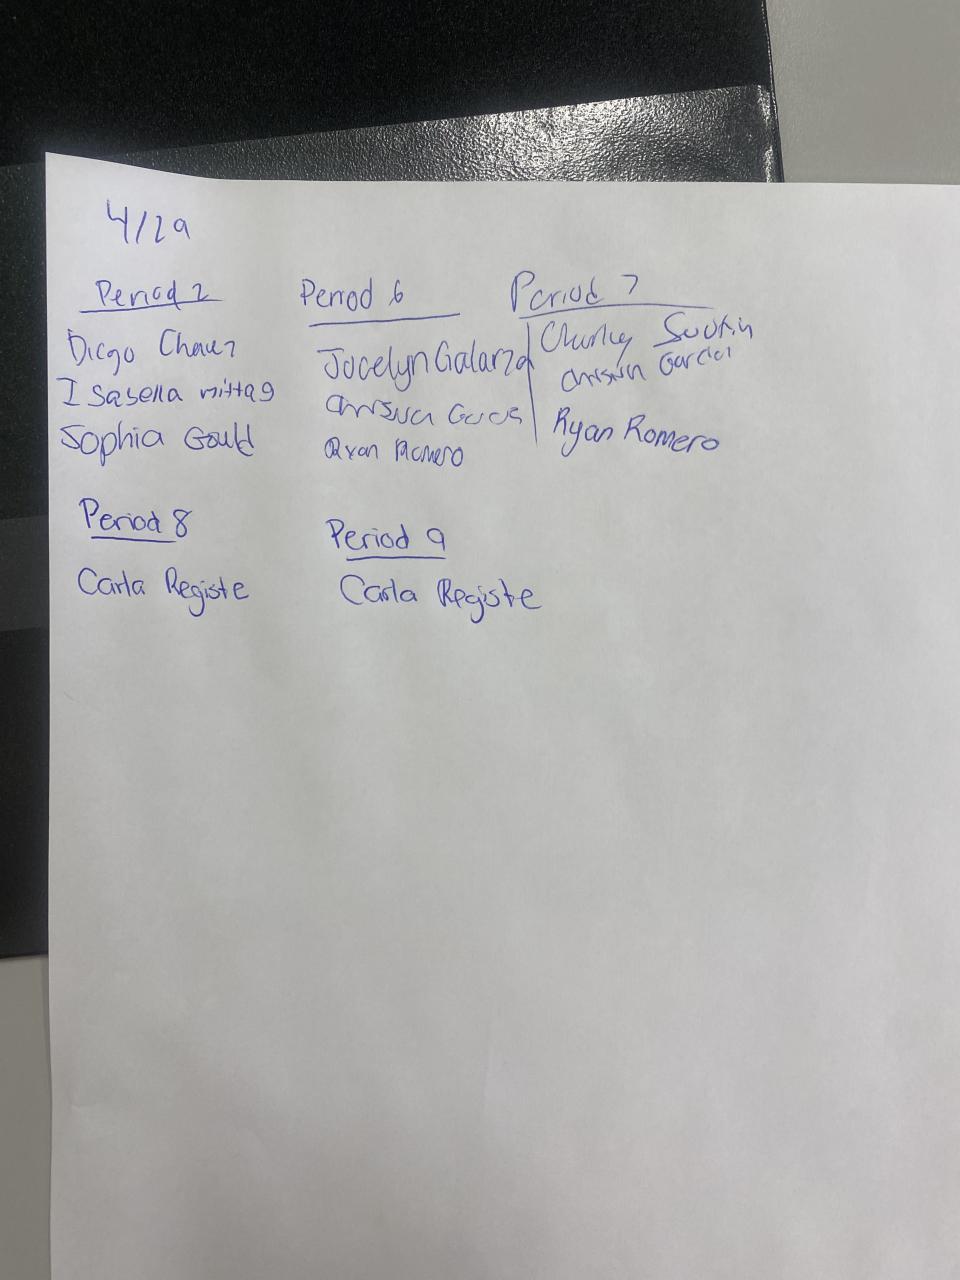 4/29
Period 2
Diego Chavez
Isabella mittag
Sophia Gould
Period 6
Jocelyn Galarza
Ryan Romero
Period 7
Charley
Garcia
Ryan Romero
Period 8
Carla Registe
Period 9
Carla Registe